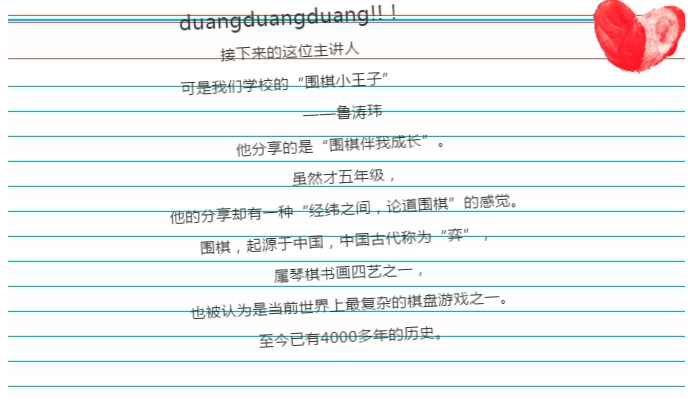 duangduangduang!!！
接下来的这位主讲人
可是我们学校的“围棋小王子”
——鲁涛玮
他分享的是“围棋伴我成长”。
虽然才五年级，
他的分享却有一种“经纬之间，论道围棋”的感觉。
围棋，起源于中国，中国古代称为“弈”，
属琴棋书画四艺之一，
也被认为是当前世界上最复杂的棋盘游戏之一。
至今已有4000多年的历史。